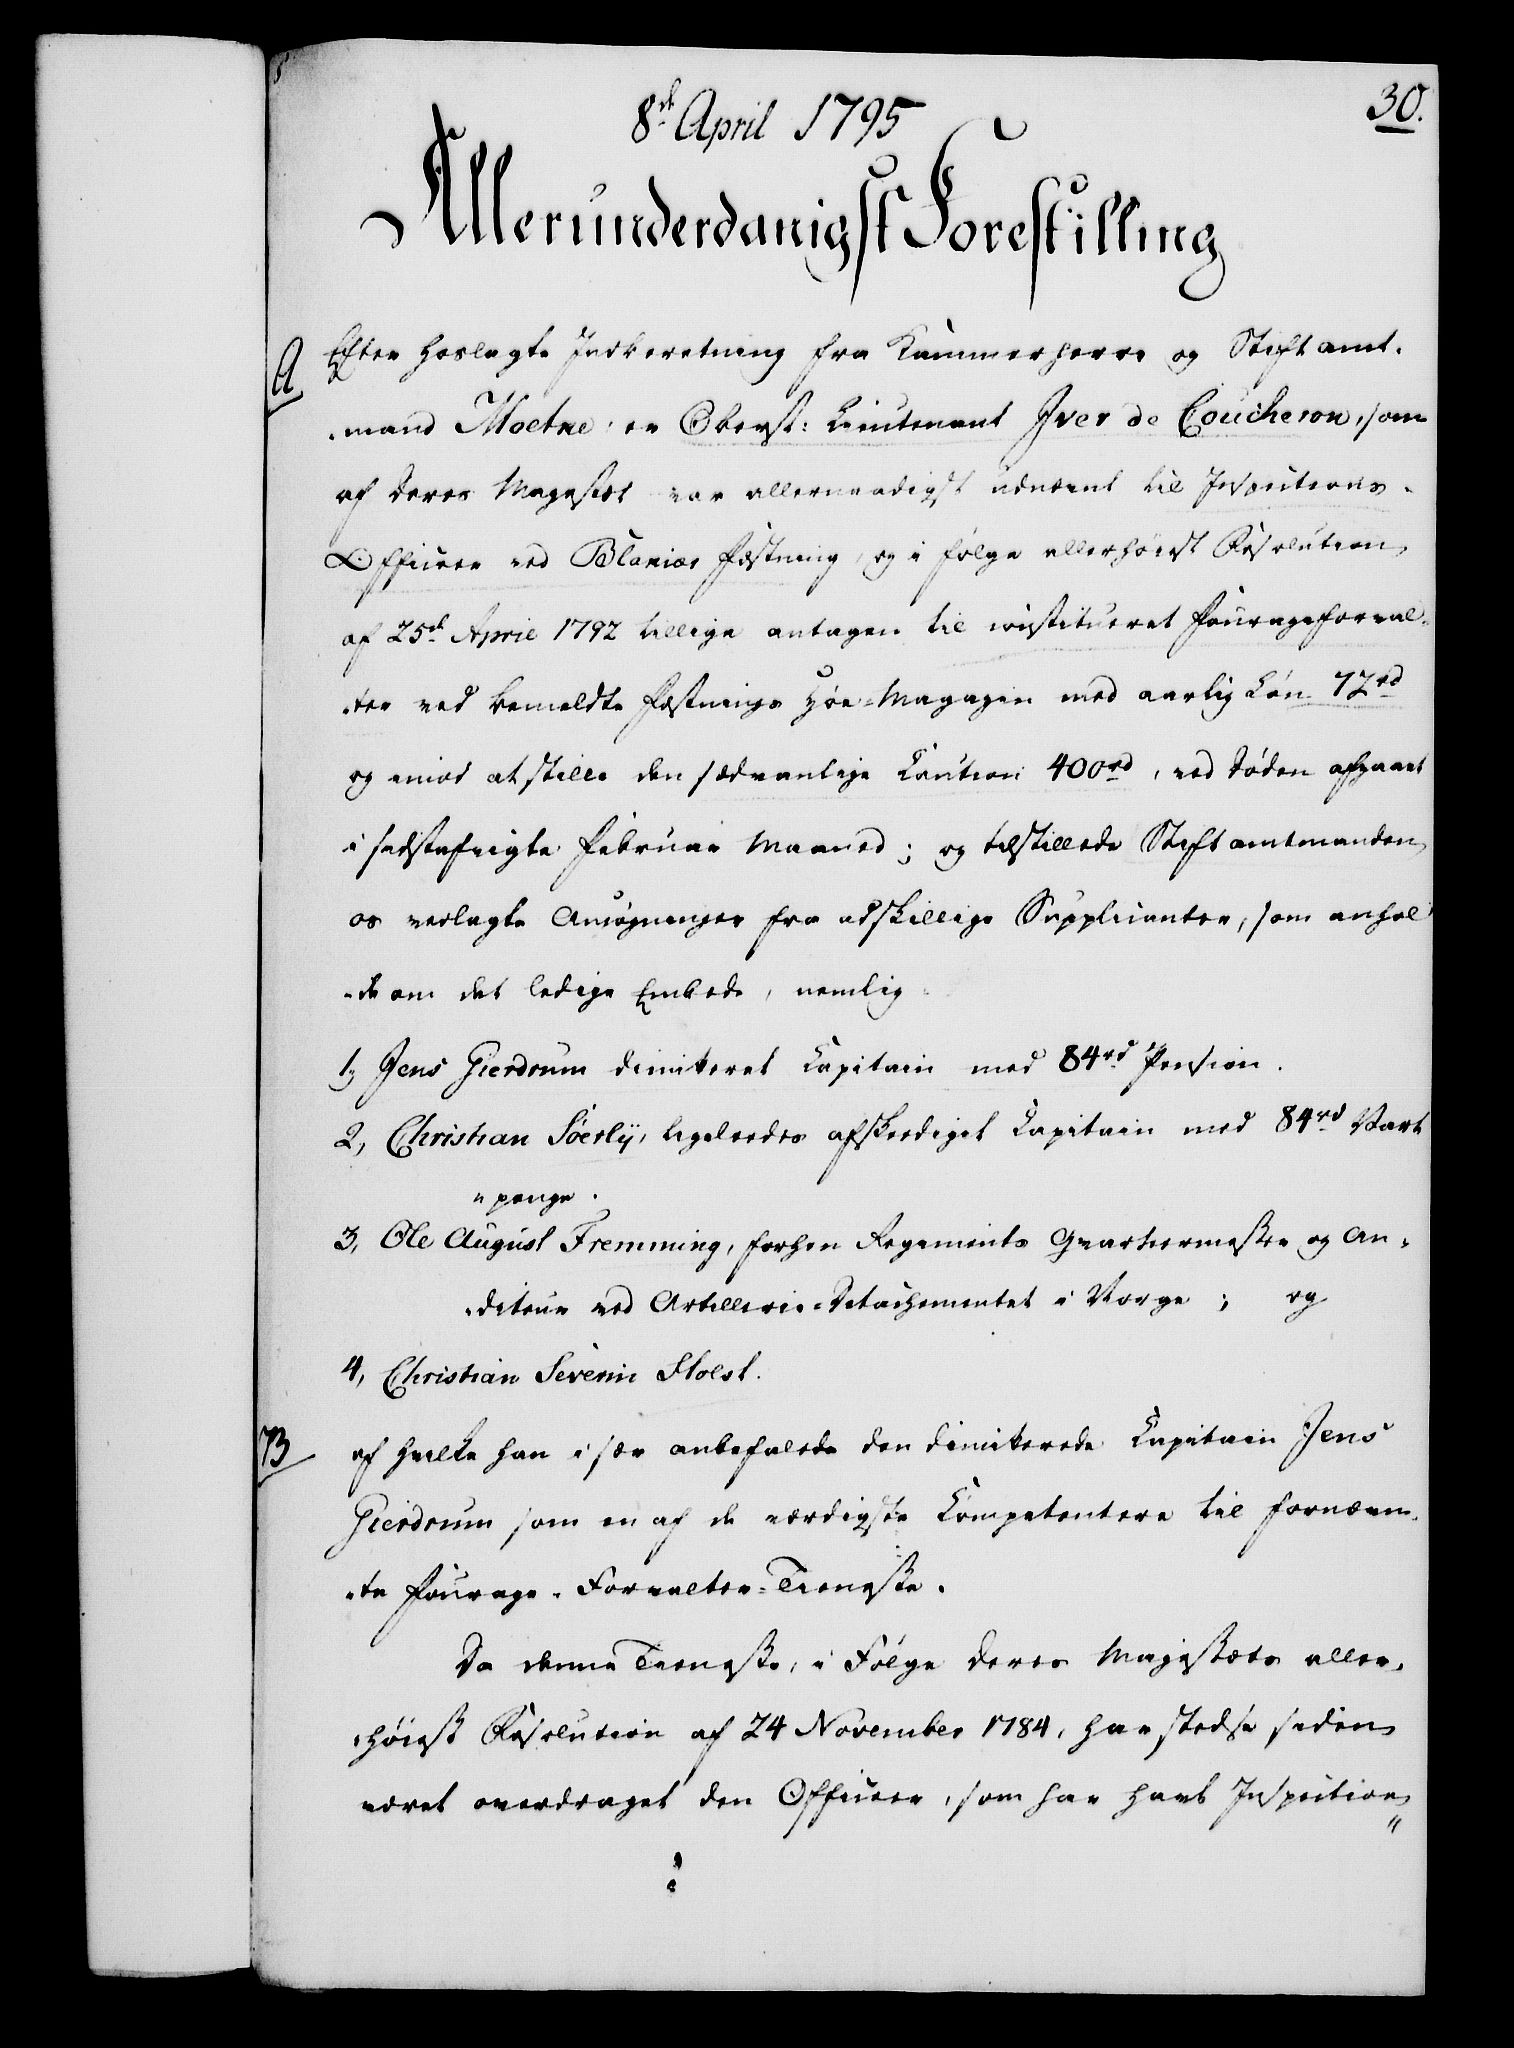 30.
8de April 1795
Allerunderdanigst Forestilling
A
Efter hoslagte Indberetning fra Kammerherre og Stiftamt-
-mand Moltke er Oberst: Lieutenant Iver de Coucheron, som
af Deres Majestet var allernaadigst udnævnt til Inspections-
Officeer ved Blakiær Fæstning, og i følge allerhøiest Resolution
af 25de April 1792 tillige antagen til constitueret Fourageforval-
-ter ved bemeldte Fæstnings Høe-Magazin med aarlig Løn 72rd
og imod at stille den sædvanlige Caution 400rd, ved Døden afgaaet
i sidstafvigte Februar Maaned; og tilstillede Stiftamtmanden
os verlagte Ansøgninger fra adskillige Supplicanter, som anhol
-de om det ledige Embede, nemlig
1, Jens Gierdrum dimitteret Capitain med 84rd Pension.
2, Christian Söerly, ligeleedes afskeediget Capitain med 84rd Vart
-penge.
3, Ole August Fremming, forhen Regiments Qvarteermester og Au-
-diteur ved Artillerie-Detachementet i Norge; og
4, Christian Severin Holst.
B
af hvilke han i sær anbefalede den dimitterede Capitain Jens
Gierdrum som en af de værdigste Competentere til fornævn-
-te Fourage-Forvalter-Tieneste.
Da denne Tieneste, i Følge Deres Majestæts aller-
-høiest Resolution af 24 November 1784, har stedse siden
været overdraget den Officeer, som har havt Inspection